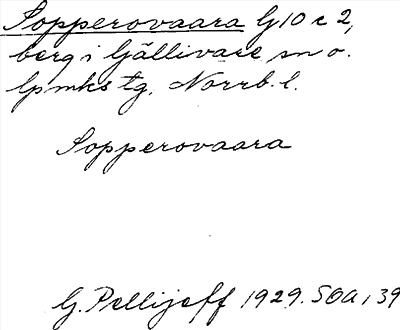 Sopperovaara G10 c 2,
berg i Gällivare sn o.
lpmks tg. Norrb. l.
Sopperovaara
G. Pellijeff 1929. SOA, 39